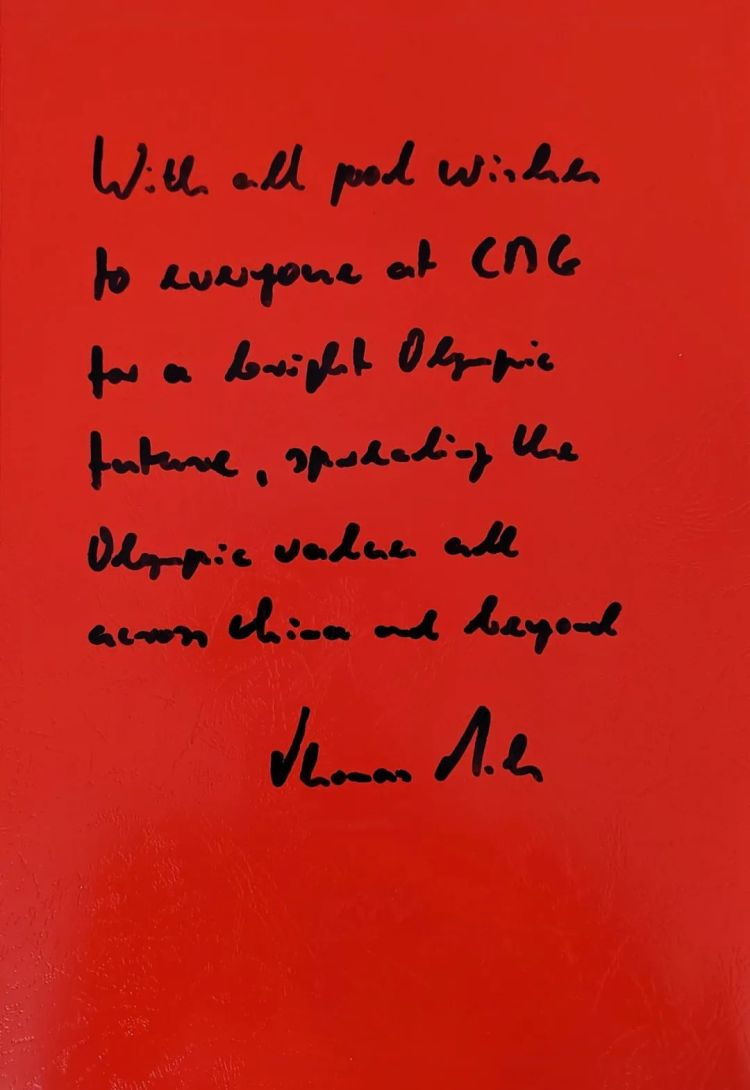 With all good wishes
to everyone at CMG
for a bright Olympic
future, spreading the
Olympic values all
across China and beyond
Thomas Bach